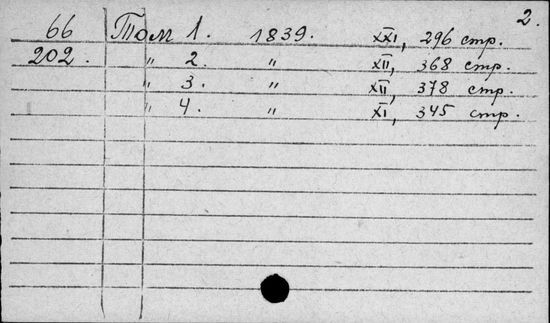 2.
66 Том 1. 1839. XXI, 296 стр.
202. " 2. " XII, 368 стр.
" 3. " XII, 378 стр.
" 4. " XI, 345 стр.